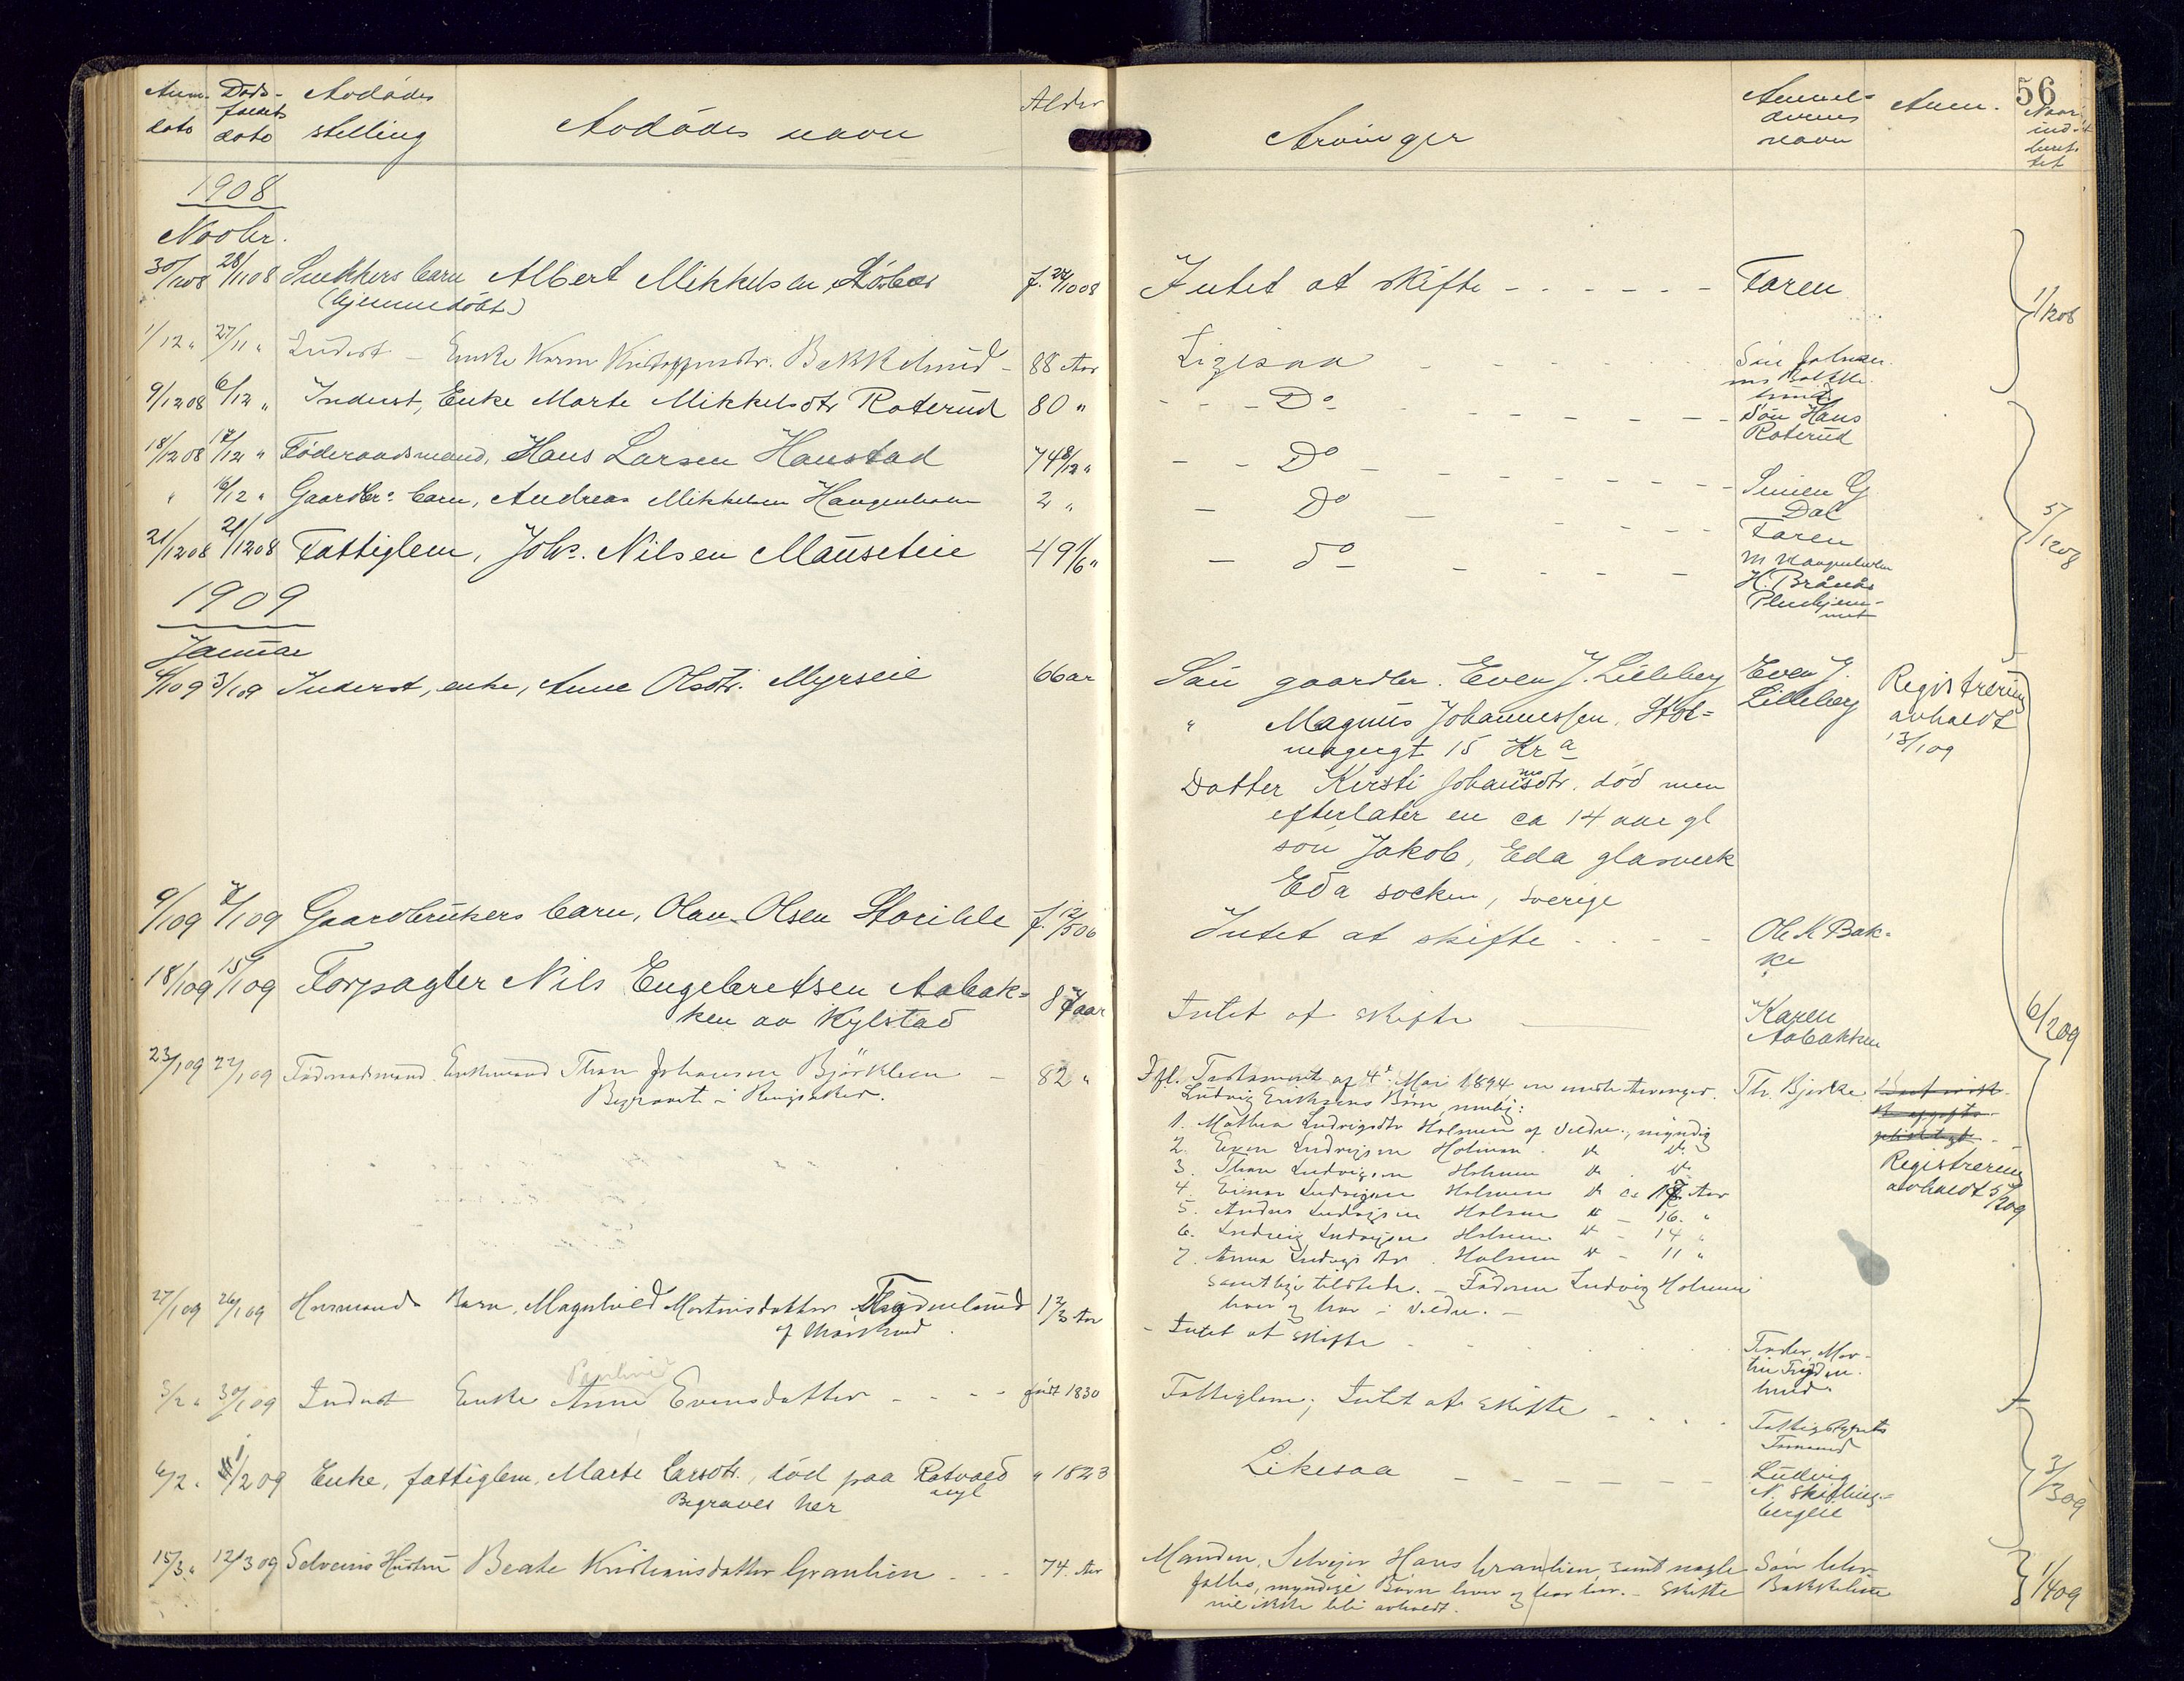 Anm. dato
Døds-faldets dato
Avdødes stilling
Avdødes navn
Alder
Arvinger
Anmelderens navn
Anm.
56
Naar indberettet
1908
Novbr.
30/1108 28/1108 Snekkers barn Albert Mikkelsen,
(hjemmedøbt)
f. 24/1008
Intet at skifte - - - - - -
Faren
1/1208
1/12 " 27/11 " Inderst - Enke Karen Kristoffersdtr. Bakkelund - 88 Aar
Ligesaa - - -
Søn Johan
9/1208 6/12 " Inderst, Enke Marte Mikkelsdtr Roterud 80 "
- - - Do - - - - -
Søn Hans
Roterud
18/1208 17/12 " Føderaadsmand, Hans Larsen Haustad 74 8/12 "
- - Do - - - - -
Simen G
Dal
" 16/12 " Gaardbr. barn, Andreas Mikkelsen Haugenholm 2 "
- Do - - - -
Faren
M Haugenholm
21/1208 21/1208 Fattiglem, Johs. Nilsen Mauseteie 49 1/6 "
- do - - - -
H. Brånås
Pleiehjem-
met
5/1208
1909
Januar
4/109 3/109 Inderst, enke, Anne Olsdtr. Myrseie 66 aar
Søn gaardbr. Even J. Lilleberg
Even J.
Lilleberg
Registrering
avholdt
13/109
" Magnus Johannessen, Stok=
15 Kra
Datter Kirsti Johannsdtr. død men
efterlater en ca 14 aar gl
søn Jakob, Eda glasverk
Eda socken, Sverige
9/109 7/109 Gaardbrukers barn, Olav Olsen Storihle f. 12/506
Intet at skifte - - - -
Ole K Bak=
ke
18/109 15/109 Forpagter Nils Engebretsen Aabak=
ken av Kylstad
87 aar
Intet at skifte
Karen
Aabakken
6/209
23/109 22/109 Føderaadsmand Enkemand Thor Johansen Björklien - 82 "
Begravet i Ringsaker.
Ifl. Testament af 4de Mai 1894 er arvinger.
Ludvig Eriksens Børn, nemlig:
Th. Bjerke
1. Mathea Ludvigsdtr Holmen af Veldre, myndig
2. Even Ludvigsen Holmen " "
3. Thor Ludvigsen Holmen " "
4. Einar Ludvigsen Holmen " ca 17 Aar
5. Anders Ludvigsen Holmen " - 16. "
6. Ludvig Ludvigsen Holmen " - 14 "
7. Anna Ludvigsdtr. Holmen " - 11 "
samtlige tilstede. - Faderen Ludvig Holmen
bor og i Veldre. -
Registrering
avholdt 5/209
27/109 26/109 Husmands Barn, Magnhild Martinsdatter Frydenlund 1 2/3 Aar
- Intet at skifte - - -
Fader, Mar-
tin Fryden-
lund.
3/2 " 30/109 Inderst Enke Anne Evensdatter - - - - født 1830
Fattiglem; Intet at skifte - - - -
Fattigstyrets
Formand
6/2 " 1/209 Enke, fattiglem, Marte Larsdtr., død paa Rotvold
asyl
Begraves her
" 1823
Likesaa - - - - - -
Ludvig
N. Skyberg-
bergeie
3/309
15/3 " 12/309 Selveiers Hustru Beate Kristiansdatter Granlien - - - 74. Aar
Manden, Selveier Hans Granlien, samt nogle
fælles, myndige Børn hver og her. - Skifte
vil ikke bli avholdt.
Søn
Bakkelien
1/409